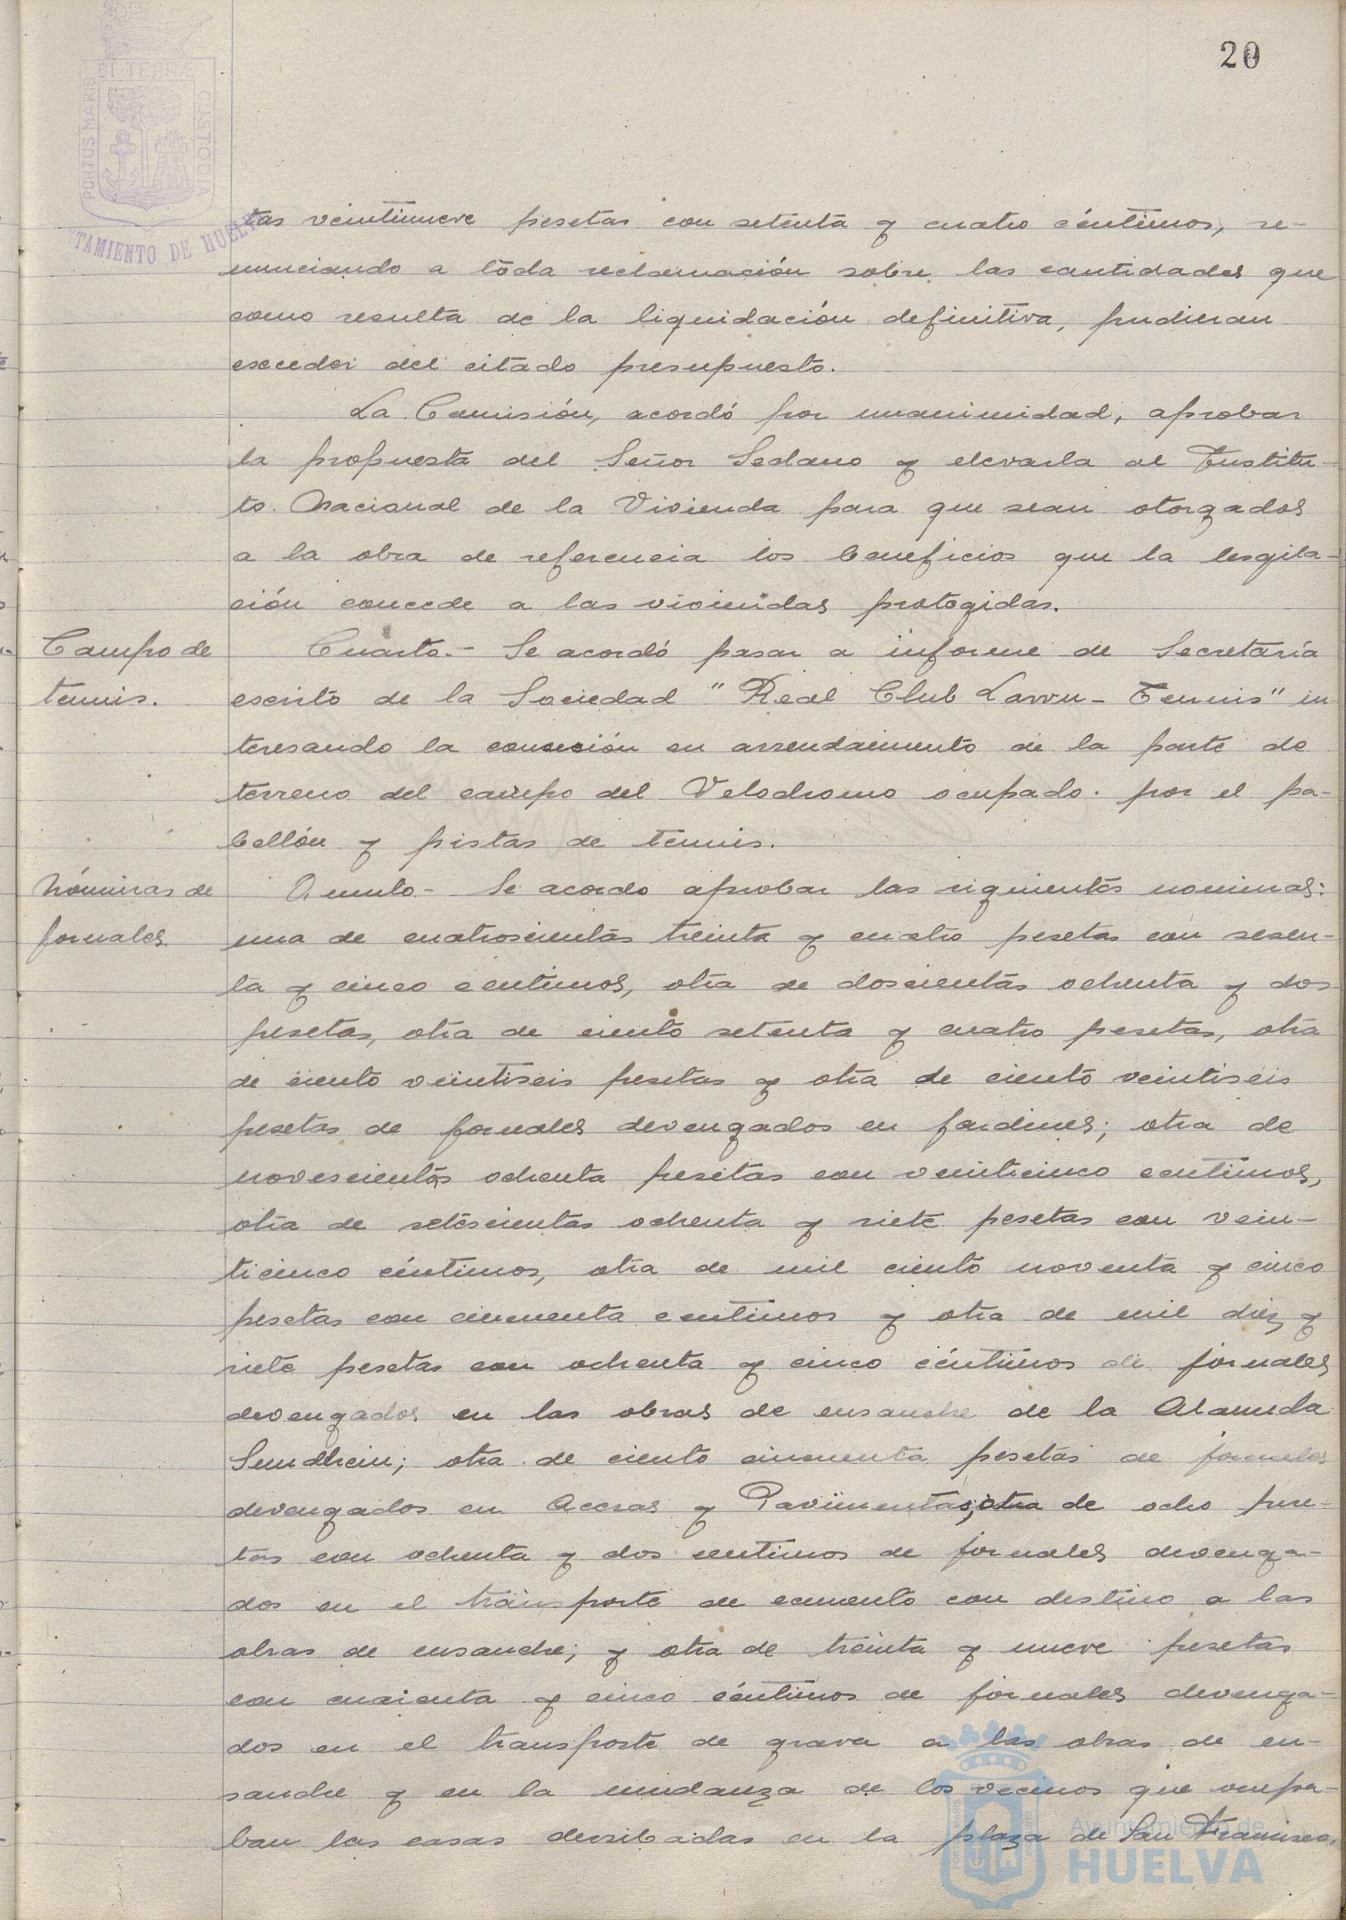 20
PORTUS MARIS ET TERRÆ CUSTODIA
NTAMIENTO DE HUELVA
tas veintinueve pesetas con setenta y cuatro céntimos, re-
nunciando a toda reclamación sobre las cantidades que
como resulta de la liquidación definitiva, pudieran
esceder del citado presupuesto.
La Comisión, acordó por unanimidad, aprobar
la propuesta del Señor Sedano y elevarla al Institu-
to Nacional de la Vivienda para que sean otorgados
a la obra de referencia los beneficios que la lesgila-
ción concede a las viviendas protegidas.
Campo de
tennis.
Cuarto.- Se acordó pasar a informe de Secretaría
escrito de la Sociedad "Real Club Lawn-Tennis" in
teresando la conseción en arrendamiento de la parte de
terreno del campo del Velodromo ocupado por el pa-
bellón y pistas de tennis.
Nóminas de
jornales.
Quinto- Se acordo aprobar las siguientes nominas:
una de cuatroscientas treinta y cuatro pesetas con sesen-
ta y cinco centimos, otra de doscientas ochenta y dos
pesetas, otra de ciento setenta y cuatro pesetas, otra
de ciento veintiseis pesetas y otra de ciento veintiseis
pesetas de jornales devengados en jardines; otra de
novescientas ochenta pesetas con veinticinco centimos,
otra de setescientas ochenta y siete pesetas con vein-
ticinco céntimos, otra de mil ciento noventa y cinco
pesetas con cincuenta centimos y otra de mil diez y
siete pesetas con ochenta y cinco céntimos de jornales
devengados en las obras de ensanche de la Alameda
Sundhein; otra de ciento cincuenta pesetas de jornales
devengados en Aceras y Pavimentas; otra de ocho pese-
tas con ochenta y dos centimos de jornales devenga-
dos en el transporte de cemento con destino a las
obras de ensanche; y otra de treinta y nueve pesetas
con cuarenta y cinco céntimos de jornales devenga-
dos en el transporte de grava a las obras de en-
sanche y en la mudanza de los vecinos que ocupa-
ban las casas derribadas en la plaza de San Francisco.
Ayuntamiento de
HUELVA